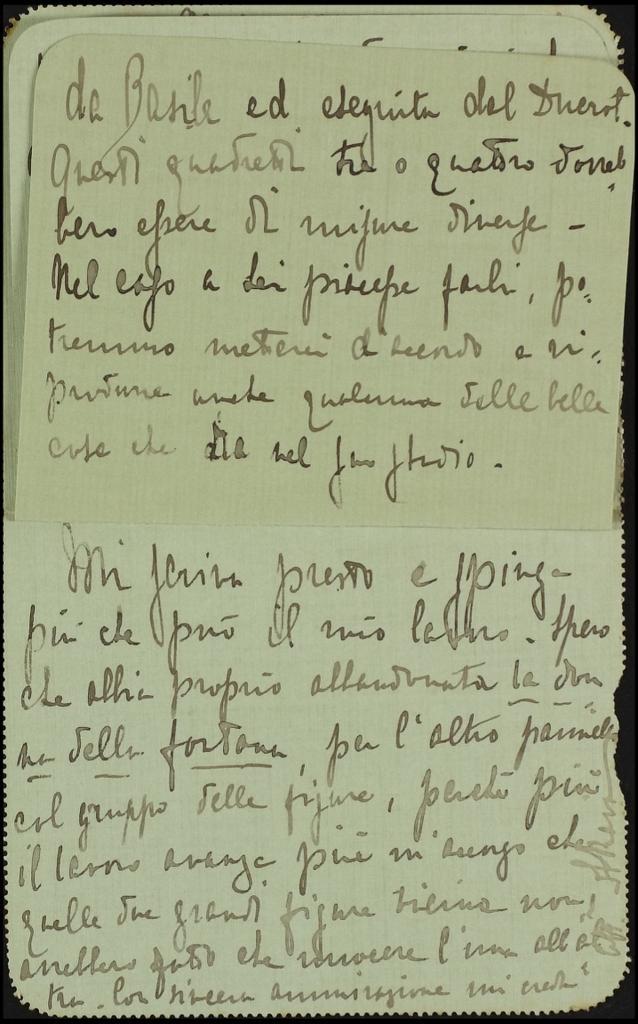 da Basile ed eseguita dal Ducrot.
Questi quadretti tre o quattro dovreb
bero essere di misure diverse -
Nel caso a Lei piacesse farli, po=
tremmo metterci d'accordo e ri=
produrre anche qualcuna delle belle
cose che ha nel suo studio.
Mi scriva presto e spinga
più che può il mio lavoro. Spero
che abbia proprio abbandonata la don
na della fortuna, per l'altro pannello
col gruppo delle figure, perché più
il lavoro avanza più m'accorgo che
quelle due grandi figure vicine non
avrebbero fatto che nuocere l'una all'al
tra. Con sincera ammirazione mi creda